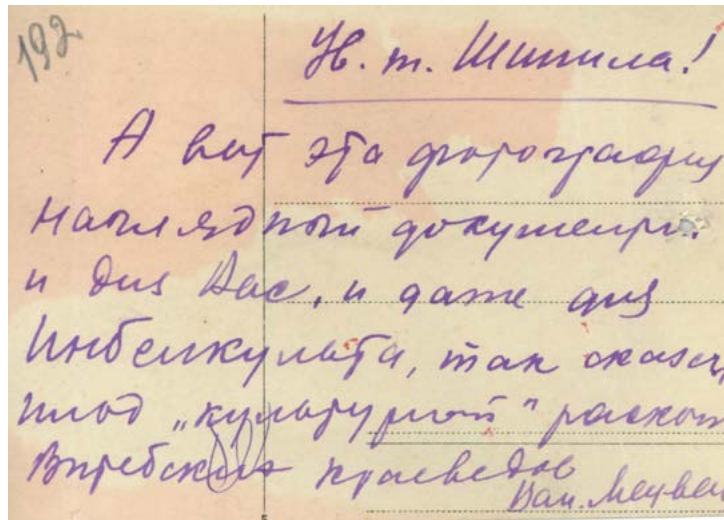 192
Ув. т. Шипила!
А вот эта фотография
наглядный документ.
и для Вас, и даже для
Инбелкульта, так сказать,
плод „культурной" раскоп
Витебских краеведов